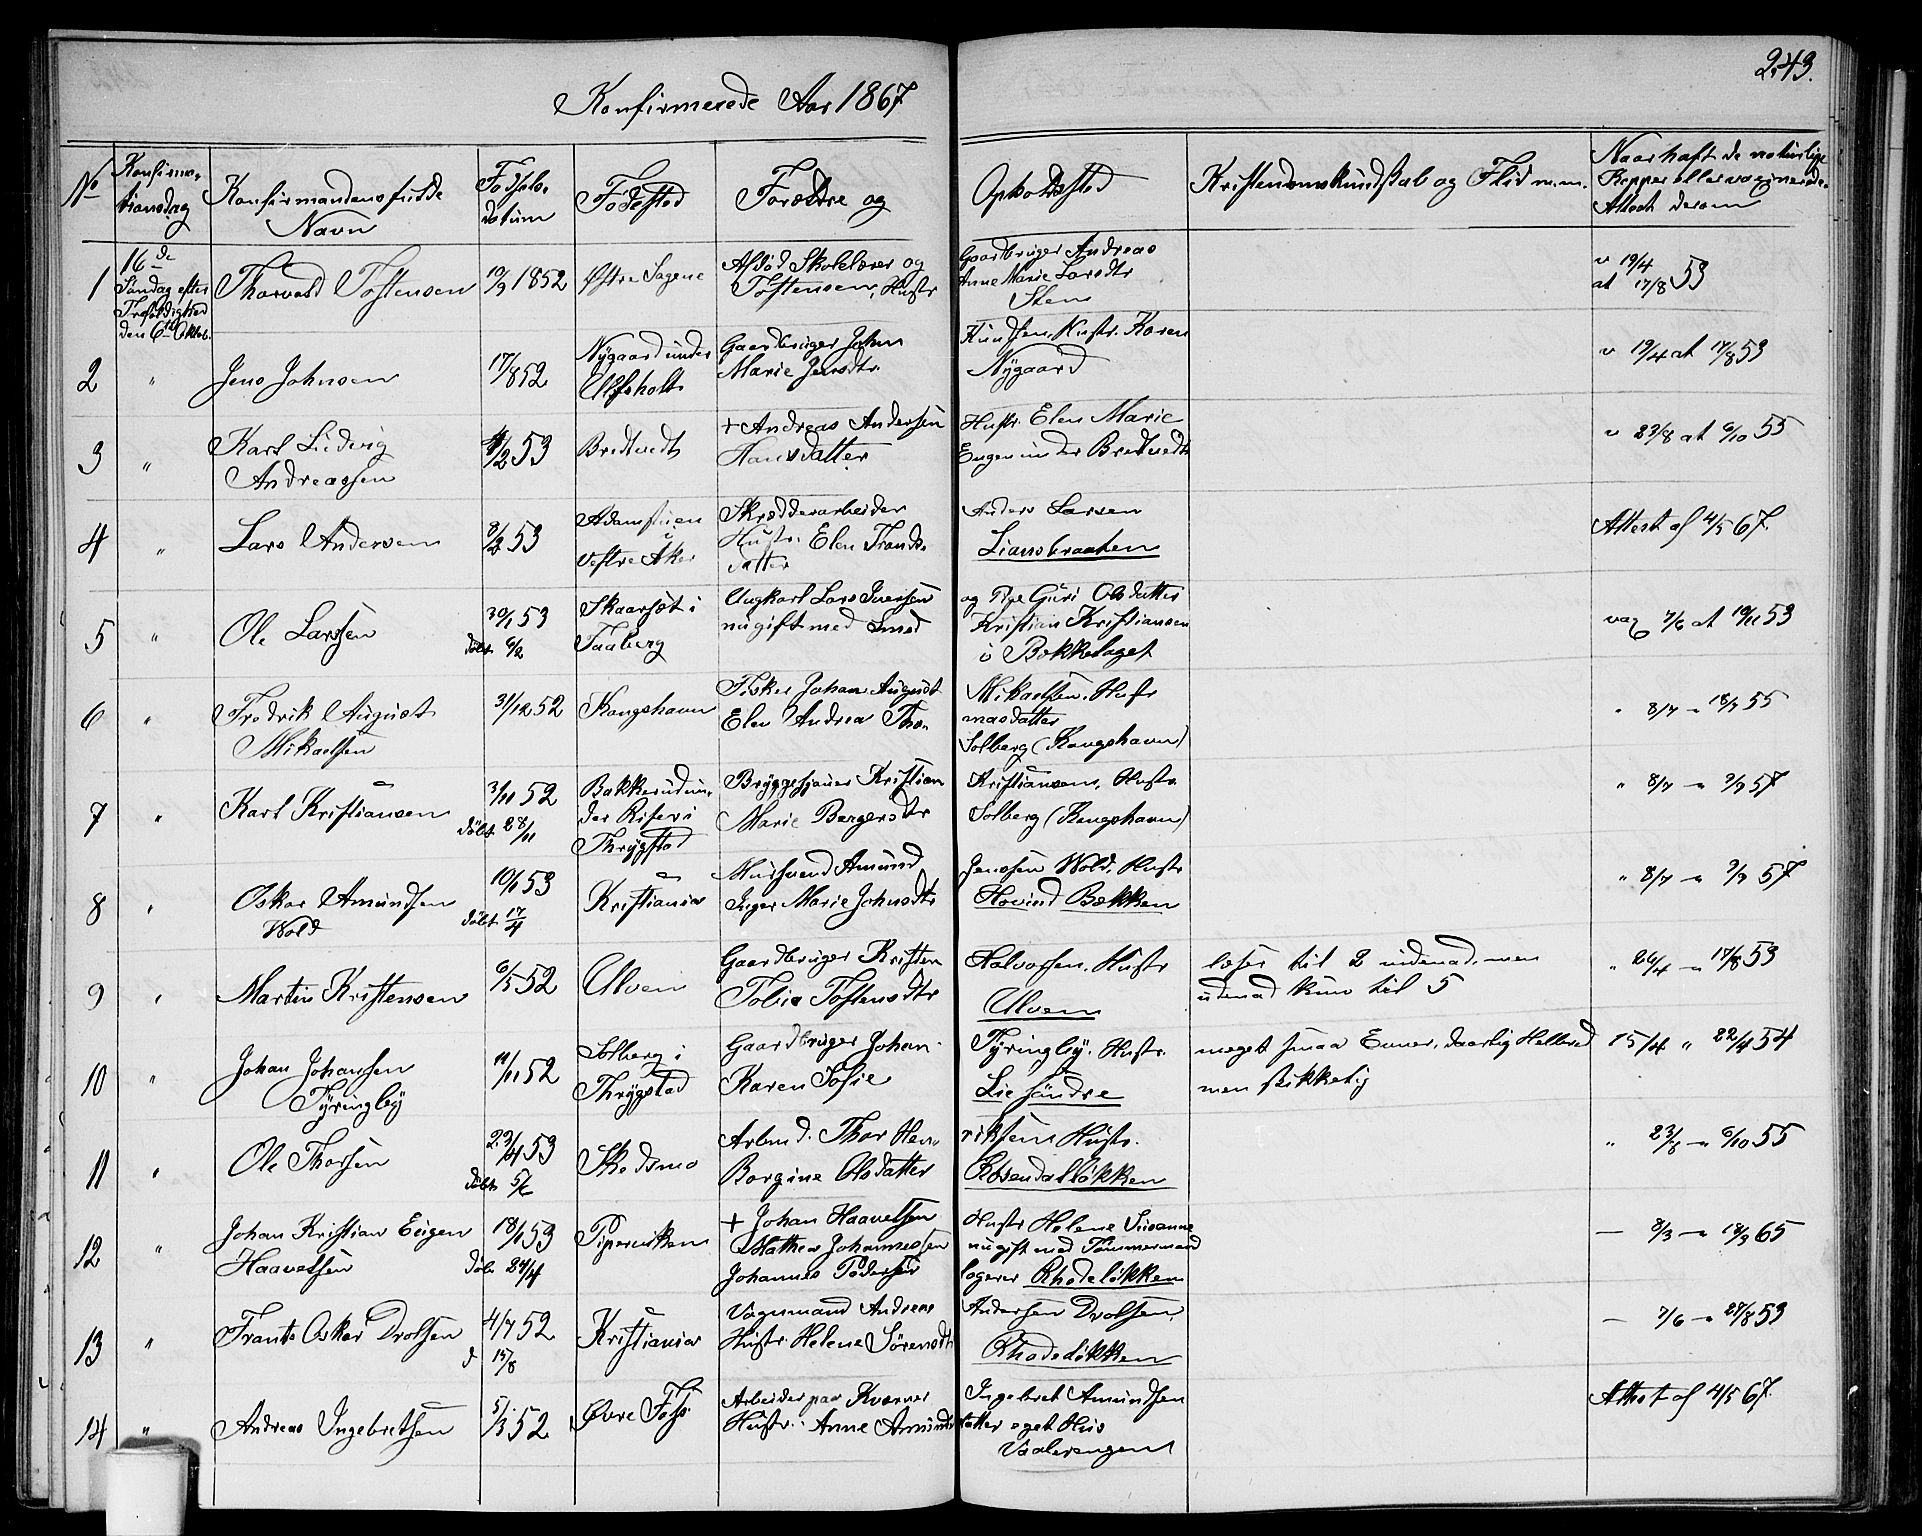 243.
Konfirmerede Aar 1867
No
Konfirma-
tionsdag
Konfirmandens fulde
Navn
Fødsels-
datum
Fødested
Forældre og
Opholdssted
Kristendomskundskab og Flid m.m.
Naar haft de naturlige
Kopper eller vaccinerede.
Attest derom
1
16de
Søndag efter
Trefoldighed
den 6te Oktob.
Thorvald Tostensen
10/9 1852
Østre Sagene
Afdød Skolelærer og
Tostensen, Hustr
Gaardbruger Andreas
Anne Marie Larsdtr
Sten
v 19/4
at 17/8 53
2
"
Jens Johnsen
17/8 52
Nygaard under
Ulfsholt
Gaardbruger John
Marie Jensdtr
Knudsen, Hustr. Karen
Nygaard
v 19/4 at 17/8 53
3
"
Karl Ludvig
Andreassen
/2 53
Bredtvedt
+ Andreas Andersen
Hansdatter
Hustr. Elen Marie
Engen under Bredtvedt
v 23/8 at 6/10 55
4
"
Lars Andersen
8/2 53
Adamstuen
Vestre Aker
Skrædderarbeider
Hustr. Elen Frands-
datter
Anders Larsen
Liansbraaten
Attest af 4/5 67.
5
"
Ole Larssen
30/1 53
døbt 6/2
Skaarsæt i
Faaberg
Ungkarl Lars Iversen
nu gift med Smed
og Pige Guri Olsdatter
Kristian Kristiansen
i Bækkelaget
vac 7/6 at 19/11 53
6
"
Fredrik August
Mikaelsen
31/12 52
Kongshavn
Fisker Johan August
Elen Andrea Tho-
Mikaelsen, Hustr
masdatter
Solberg (Kongshavn)
" 8/7 " 18/9 55
7
"
Karl Kristiansen
3/11 52
døbt 28/11
Bakkerud un-
der Riser i
Thrygstad
Bryggesjauer Kristian
Marie Bergersdtr
Kristiansen, Hustr.
Solberg (Kongshavn)
" 8/7 " 9/9 57
8
"
Oskar Amundsen
Wold
10/1 53
døbt 17/4
Kristiania
Mursvend Amund
Inger Marie Johnsdtr
Jenssen Wold, Hustr
Hovind Bækken
" 8/7 " 9/9 57
9
"
Martin Kristensen
6/5 52
Ulven
Gaardbruger Kristen
Tobia Tostensdtr
Halvorsen, Hustr
Ulven
læser til 2 indenad, men
udenad kun til 5
" 26/4 " 17/8 53
10
"
Johan Johansen
Tyringby
11/11 52
Solberg i
Thrygstad
Gaardbruger Johan
Karen Sofie
Tyringby, Hustr.
Lie søndre
meget smaa Evner, daarlig Helbred
men skikkelig
15/4 " 22/4 54
11
"
Ole Thorsen
23/4 53
døbt 5/6
Skedsmo
Arbmd. Thor Hen-
Borgine Olsdatter
riksen Hustr.
Rosendalløkken
" 23/8 " 6/10 55
12
"
Johan Kristian Eugen
Haavelsen
18/1 53
døbt 24/4
Piperviken
+ Johan Haavelsen
Mathea Johannessen
Johannes Pedersen
Hustr Helene Susanne
nu gift med Tømmermand
logerer Rhodeløkken
— 8/3 " 18/9 65
13
"
Frants Oskar Drolsen
4/7 52
d 15/8
Kristiania
Vognmand Andreas
Hustr. Helene Sørensdtr
Andersen Drolsen,
Rhodeløkken
— 7/6 " 27/8 53
14
"
Andreas Ingebretsen
5/3 52
Øvre Foss
Arbeider paa Kværner
Hustr. Anne Amunds-
Ingebret Amundsen
datter eget Hus
Vaalerengen
Attest af 4/5 67.